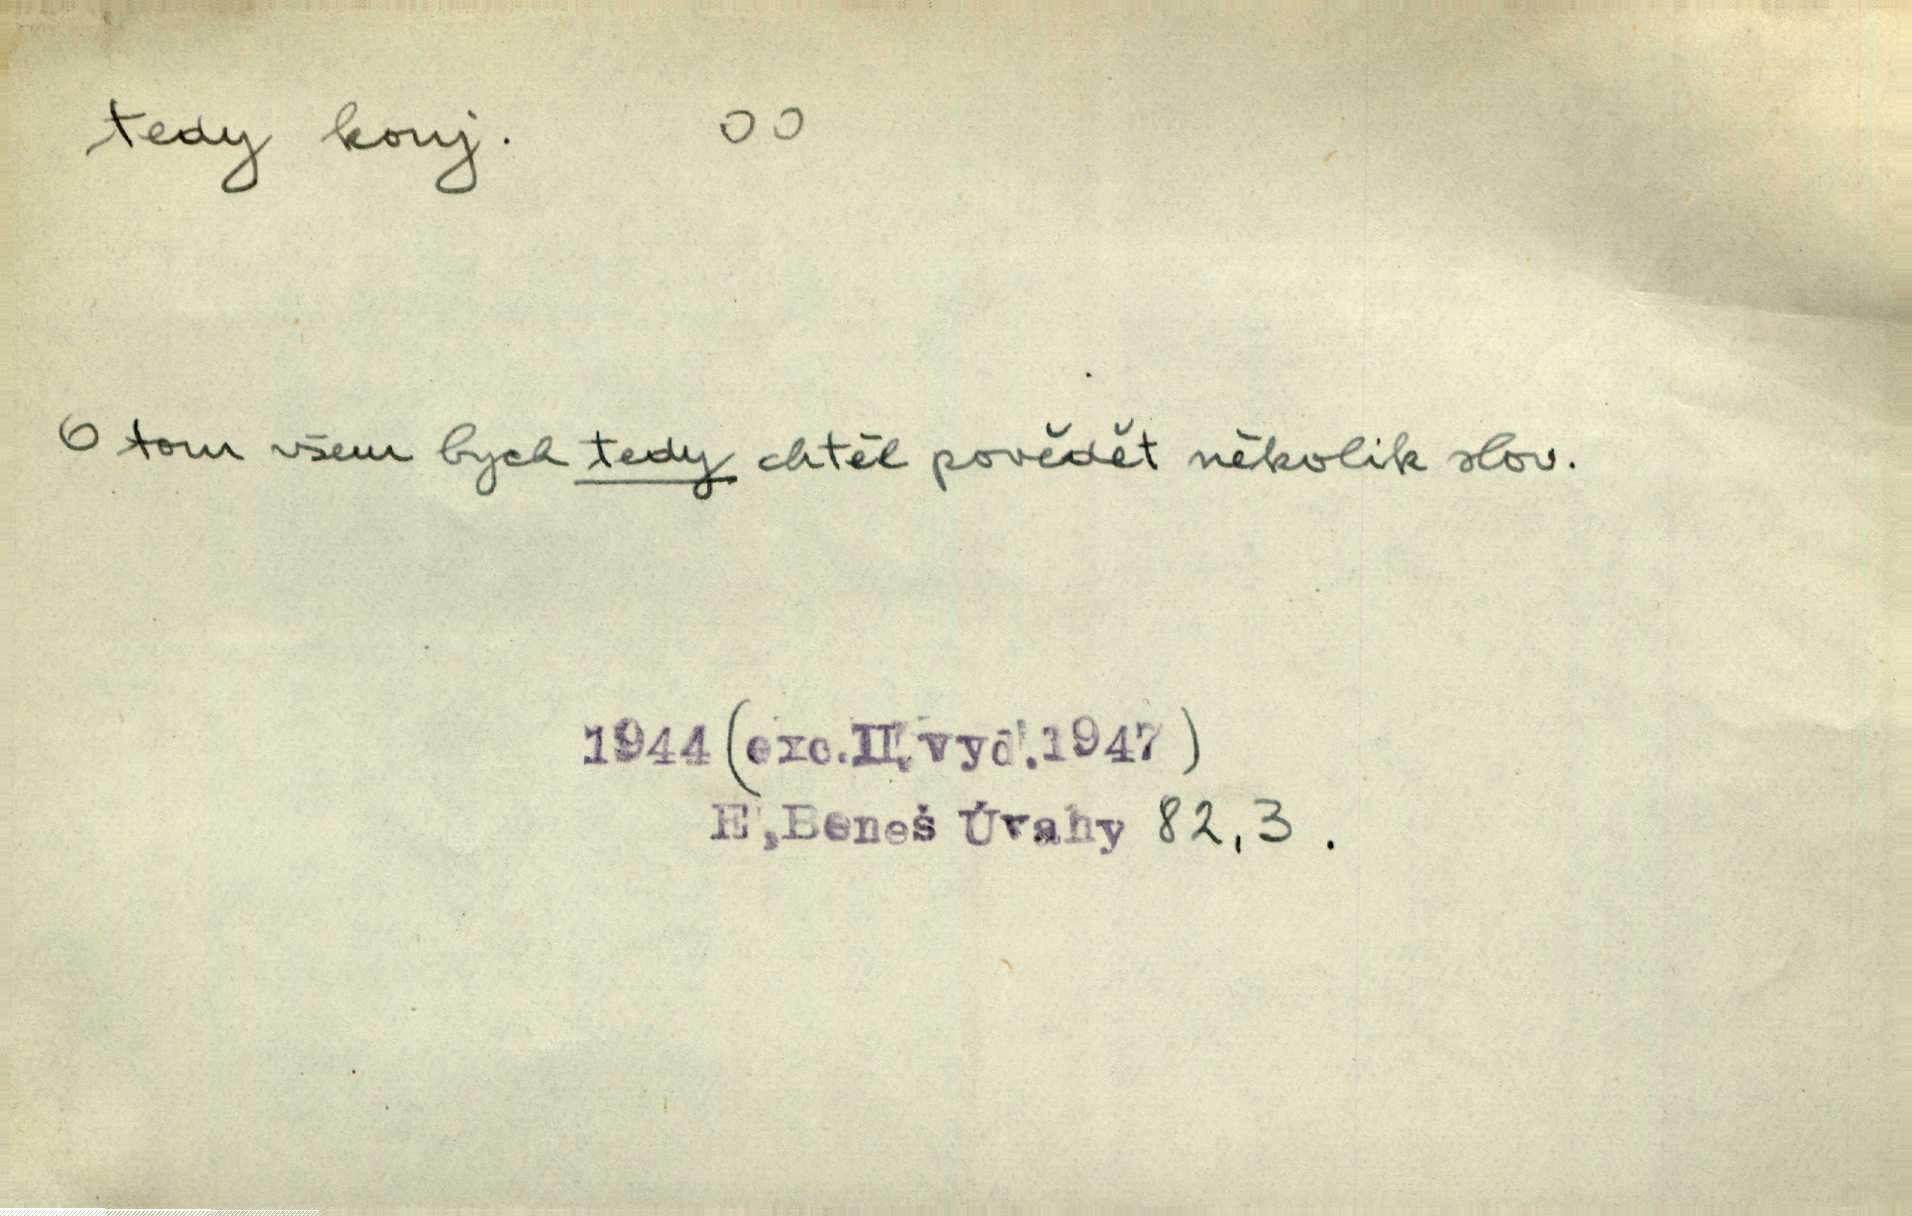 tedy konj. 00
O tom všem bych tedy chtěl povědět několik slov.
1944 (exc. II. vyd. 1947)
E. Beneš Úvahy 82,3.